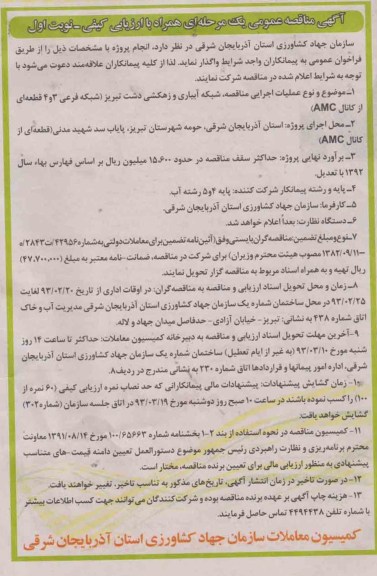 آگهی مناقصه عمومی یک مرحله‌ای همراه با ارزیابی کیفی ـ نوبت اول
سازمان جهاد کشاورزی استان آذربایجان شرقی در نظر دارد، انجام پروژه با مشخصات ذیل را از طریق
فراخوان عمومی به پیمانکاران واجد شرایط واگذار نماید. لذا از کلیه پیمانکاران علاقه‌مند دعوت می‌شود با
توجه به شرایط اعلام شده در مناقصه شرکت نمایند.
۱ـ موضوع و نوع عملیات اجرایی مناقصه، شبکه آبیاری و زهکشی دشت تبریز (شبکه فرعی ۳و۴ قطعه‌ای
از کانال AMC)
۲ـ محل اجرای پروژه: استان آذربایجان شرقی، حومه شهرستان تبریز، پایاب سد شهید مدنی(قطعه‌ای از
کانال AMC)
۳ـ برآورد نهایی پروژه: حداکثر سقف مناقصه در حدود ۱۵،۶۰۰ میلیون ریال بر اساس فهارس بهاء سال
۱۳۹۲ با تعدیل.
۴ـ پایه و رشته پیمانکار شرکت کننده: پایه ۴و۵ رشته آب.
۵ـ کارفرما: سازمان جهاد کشاورزی استان آذربایجان شرقی.
۶ـ دستگاه نظارت: بعداً اعلام خواهد شد.
۷ـ نوع و مبلغ تضمین: مناقصه‌گران بایستی وفق (آئین‌نامه تضمین برای معاملات دولتی به شماره ۴۲۹۵۶/ت۲۸۴۳ه
ـ۱۳۸۲/۰۹/۱۱ مصوب هیئت محترم وزیران) برای شرکت در مناقصه، ضمانت‌نامه معتبر به مبلغ (۴۷،۷۰۰،۰۰۰)
ریال تهیه و به همراه اسناد مربوط به مناقصه گزار تحویل نمایند.
۸ـ زمان و محل تحویل اسناد ارزیابی و مناقصه به مناقصه‌گران: در اوقات اداری از تاریخ ۹۳/۰۲/۲۰ لغایت
۹۳/۰۲/۲۵ در محل ساختمان شماره یک سازمان جهاد کشاورزی استان آذربایجان شرقی مدیریت آب و خاک
اتاق شماره ۴۳۸ به نشانی: تبریز ـ خیابان آزادی ـ حدفاصل میدان جهاد و لاله.
۹ـ آخرین مهلت تحویل اسناد ارزیابی و مناقصه به دبیرخانه کمیسیون معاملات: حداکثر تا ساعت ۱۴ روز
شنبه مورخ ۹۳/۰۳/۱۰ (به غیر از ایام تعطیل) ساختمان شماره یک سازمان جهاد کشاورزی استان آذربایجان
شرقی، اداره امور پیمانها و قراردادها اتاق شماره ۲۳۰ به نشانی مندرج در ردیف۸.
۱۰ـ زمان گشایش پیشنهادات: پیشنهادات مالی پیمانکارانی که حد نصاب نمره ارزیابی کیفی (۶۰ نمره از
۱۰۰) را کسب نموده باشند در ساعت ۱۰ صبح روز دوشنبه مورخ ۹۳/۰۳/۱۹ در اتاق جلسه سازمان (شماره۳۰۲)
گشایش خواهد یافت.
۱۱ـ کمیسیون مناقصه در نحوه استفاده از بند ۲-۱ بخشنامه شماره ۱۰۰/۶۵۶۶۳ مورخ ۱۳۹۱/۰۸/۱۴ معاونت
محترم برنامه‌ریزی و نظارت راهبردی رئیس جمهور موضوع دستورالعمل تعیین دامنه قیمت‌های متناسب
پیشنهادی به منظور ارزیابی مالی برای تعیین برنده مناقصه، مختار است.
۱۲ـ در صورت تاخیر در زمان انتشار آگهی، تاریخ‌های مذکور به تناسب تاخیر، تغییر خواهند یافت.
۱۳ـ هزینه چاپ آگهی بر عهده برنده مناقصه بوده و شرکت کنندگان می‌توانند جهت کسب اطلاعات بیشتر
با شماره تلفن ۴۴۹۴۴۳۸ تماس حاصل فرمایند.
کمیسیون معاملات سازمان جهاد کشاورزی استان آذربایجان شرقی